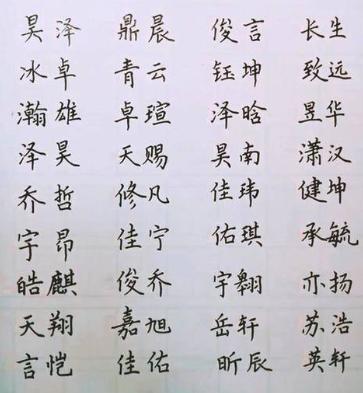 昊泽 鼎晨 俊言 长生
冰卓 青云 钰坤 致远
瀚雄 卓瑄 泽晗 昱华
泽昊 天赐 昊南 潇汉
乔哲 修凡 佳玮 健坤
宇昂 佳宁 佑琪 承毓
皓麒 俊乔 宇翱 亦扬
天翔 嘉旭 岳轩 苏浩
言恺 佳佑 昕辰 英轩